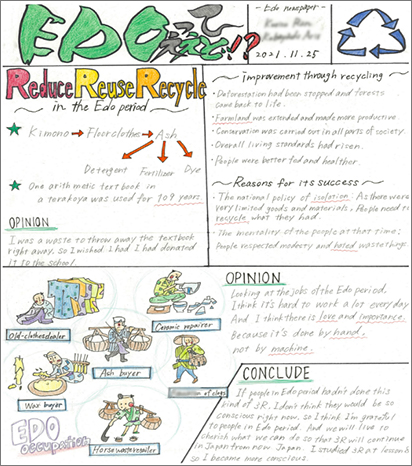 EDOってええぞ!?
- Edo newspaper -
2021.11.25
Reduce Reuse Recycle
~ in the Edo period ~
★ Kimono → Floorclothes → Ash
Detergent Fertilizer Dye
★ One arithmetic textbook in
a terakoya was used for 109 years.
OPINION
I was a waste to throw away the textbook
right away. So I wished I had I had donated
it to the school.
~ improvement through recycling ~
・Deforestation had been stopped and forests
came back to life.
・Farmland was extend and made more productive
・Conservation was carried out in all parts of society
・Overall living standards had risen.
・People were better fed and healthier.
~ Reasons for its success ~
・The national policy of isolation. As there were
very limited goods and materials. People need to
recycle what they had.
・The mentality of the people at that time;
People respected modesty and hated waste things
Old-clothes dealer
Ceramic repairer
Ash buyer
Wax buyer
of clogs
Horse waste retailer
EDO
occupation
OPINION
Looking at the jobs of the Edo period.
I think it's hard to work a lot every day
And I think there is love and importance.
Because it's done by hand.
not by machine.
CONCLUDE
If people in Edo period hadn't done this
kind of 3R, I don't think they would be so
conscious right now, so I think I'm grateful
to people in Edo period. And we will live to
cherish what we can do so that 3R will continue
in Japan from now Japan. I studied 3R at lessons
so I became more conscious.